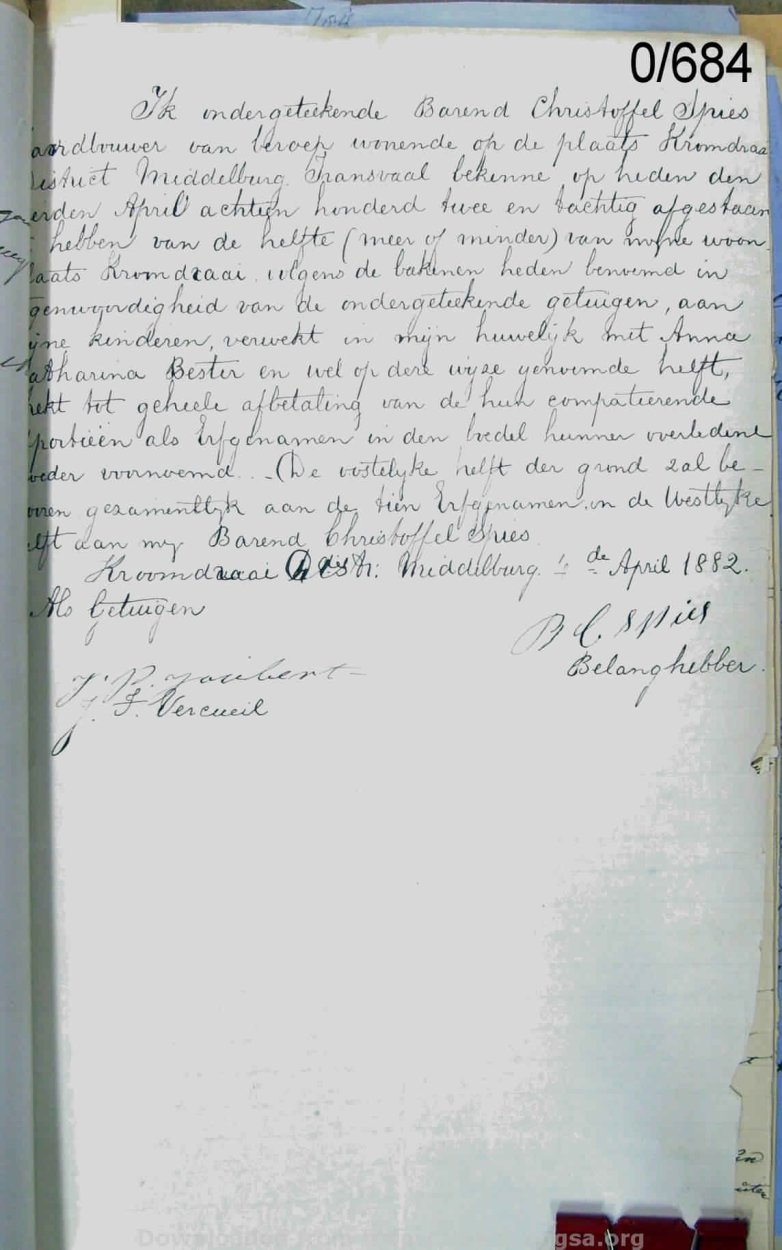 0/684
Ik ondergeteekende Barend Christoffel Spies
aardbouwer van beroep wonende op de plaats Kromdraa
istrict Middelburg Transvaal bekenne op heden den
erden April achtien honderd twee en tachtig afgestaan
hebben van de helfte (meer of minder) van myne woon
laats Kromdraai volgens de bakenen heden benoemd in
genwoordigheid van de ondergeteekende getuigen, aan
yne kinderen, verwekt in mijn huwelijk met Anna
atharina Bester en wel op dere wyze genoemde helft,
rekt tot geheele afbetaling van de hun compateerende
portieën als Erfgenamen in den boedel hunner overledene
oeder voornoemd. - (De oostelyke helft der grond zal be-
oren gezamentlyk aan de tien Erfgenamen en de Westlyke
elft aan my Barend Christoffel Spies
Kroomdraai Distr: Middelburg. 4 de April 1882.
Als Getuigen
B C Spies
Belanghebber.
J. P. Joubert
J. F. Vercueil
gsa.org